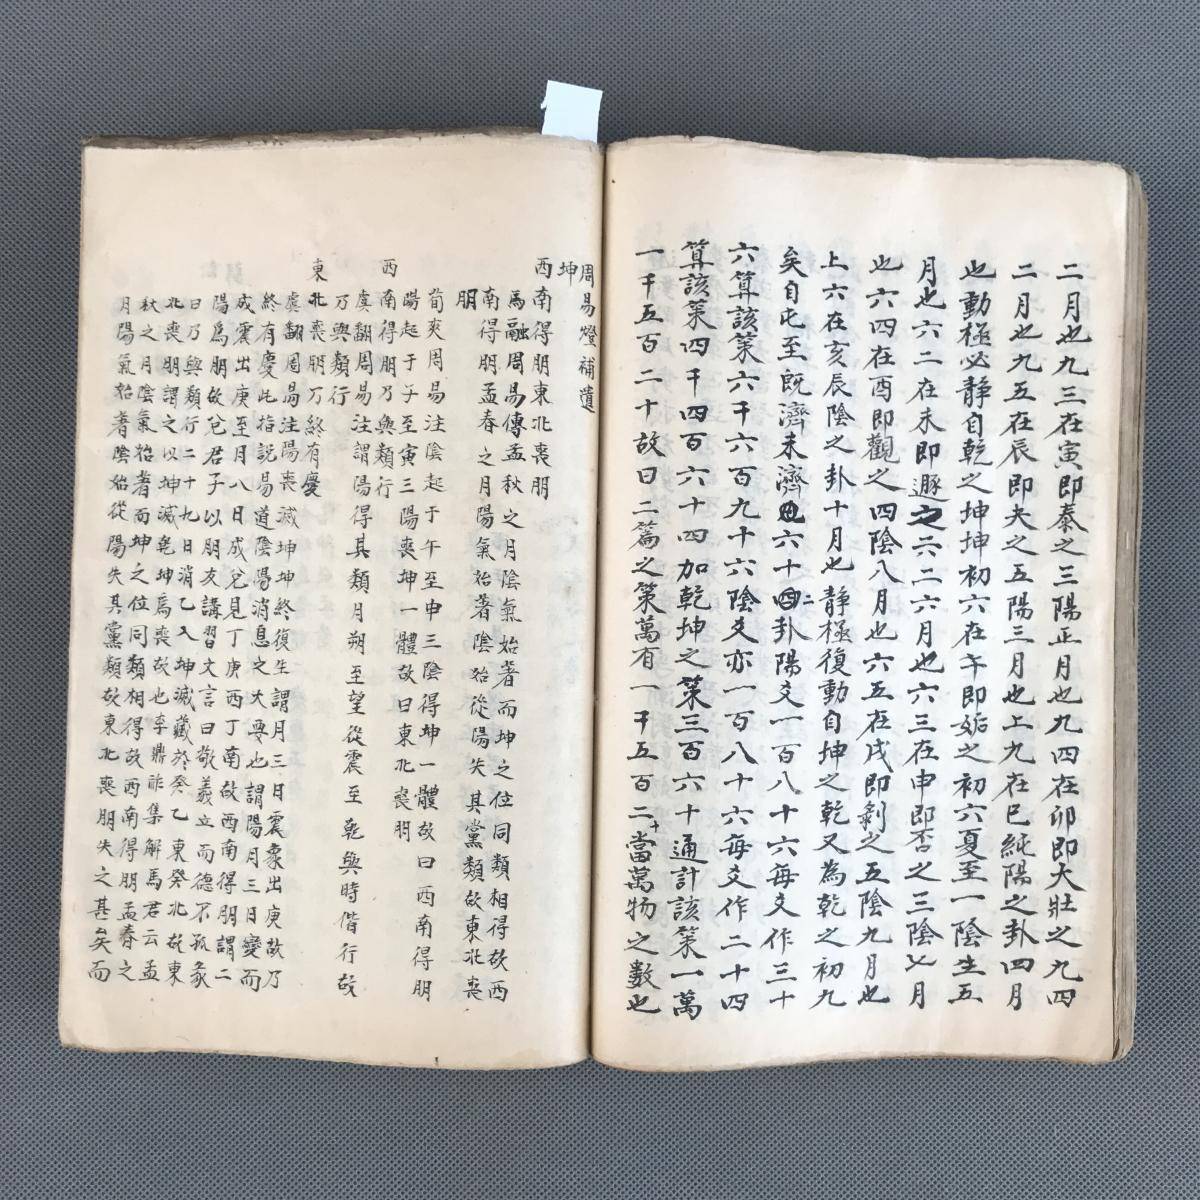 二月也九三在寅即泰之三陽正月也九四在卯即大壯之九四
二月也九五在辰即夬之五陽三月也上九在巳純陽之卦四月
也動極必靜自乾之坤坤初六在午即姤之初六夏至一陰生五
月也六二在未即遯之六二六月也六三在申即否之三陰七月
也六四在酉即觀之四陰八月也六五在戌即剝之五陰九月也
上六在亥辰陰之卦十月也靜極復動自坤之乾又為乾之初九
矣自屯至既濟未濟六十二卦陽爻一百八十六每爻作三十
六算該策六千六百九十六陰爻亦一百八十六每爻作二十四
算該策四千四百六十四加乾坤之策三百六十通計該策一萬
一千五百二十故曰二篇之策萬有一千五百二十當萬物之數也
周易燈補遺
坤
西南得朋東北喪朋
馬融周易傳孟秋之月陰氣始著而坤之位同類相得故西
南得朋孟春之月陽氣始著陰始從陽失其黨類故東北喪
朋
荀爽周易注陰起于午至申三陰得坤一體故曰西南得朋
陽起于子至寅三陽喪坤一體故曰東北喪朋
西南得朋乃與類行
虞翻周易注謂陽得其類月朔至望從震至乾與時偕行故
乃與類行
東北喪朋乃終有慶
虞翻周易注陽喪滅坤坤終復生謂月三日震象出庚故乃
終有慶此指說易道陰陽消息之大要也謂陽月三日變而
成震出庚至月八日成兌見丁庚西丁南故西南得朋謂二
陽爲朋故兌君子以朋友講習文言曰敬義立而德不孤彖
曰乃與類行二十九日消乙入坤滅藏於癸乙東癸北故東
北喪朋謂之以坤滅乾坤爲喪故也李鼎祚集解馬君云孟
秋之月陰氣始著而坤之位同類相得故西南得朋孟春之
月陽氣始著陰始從陽失其黨類故東北喪朋失之甚矣而